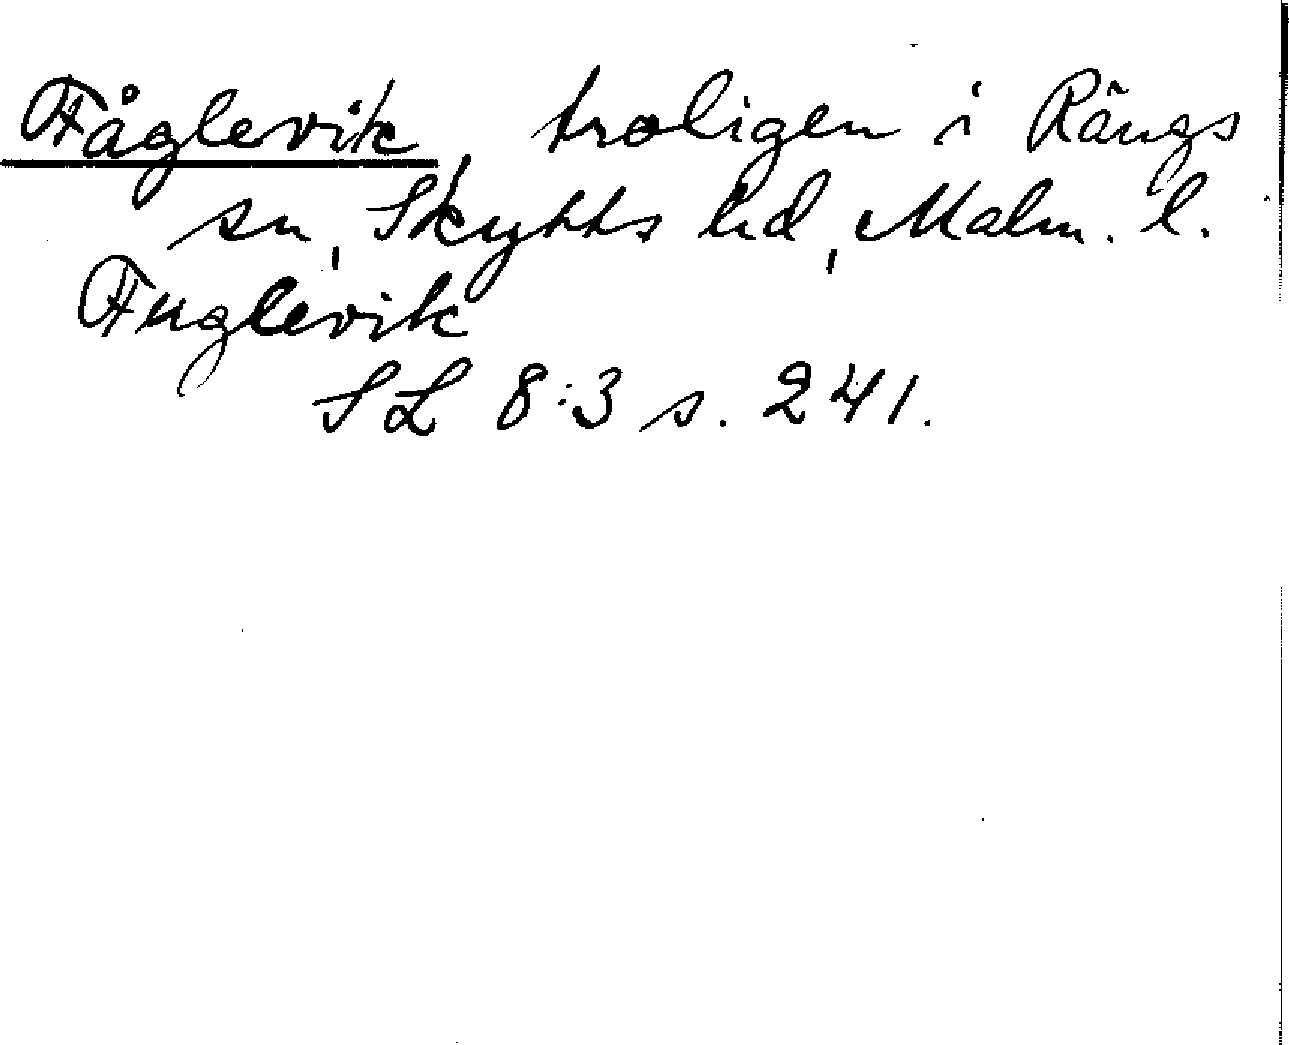 Fåglevik, troligen i Rängs
sn, Skytts hd, Malm. l.
Fuglevik
SL 8:3 s. 241.